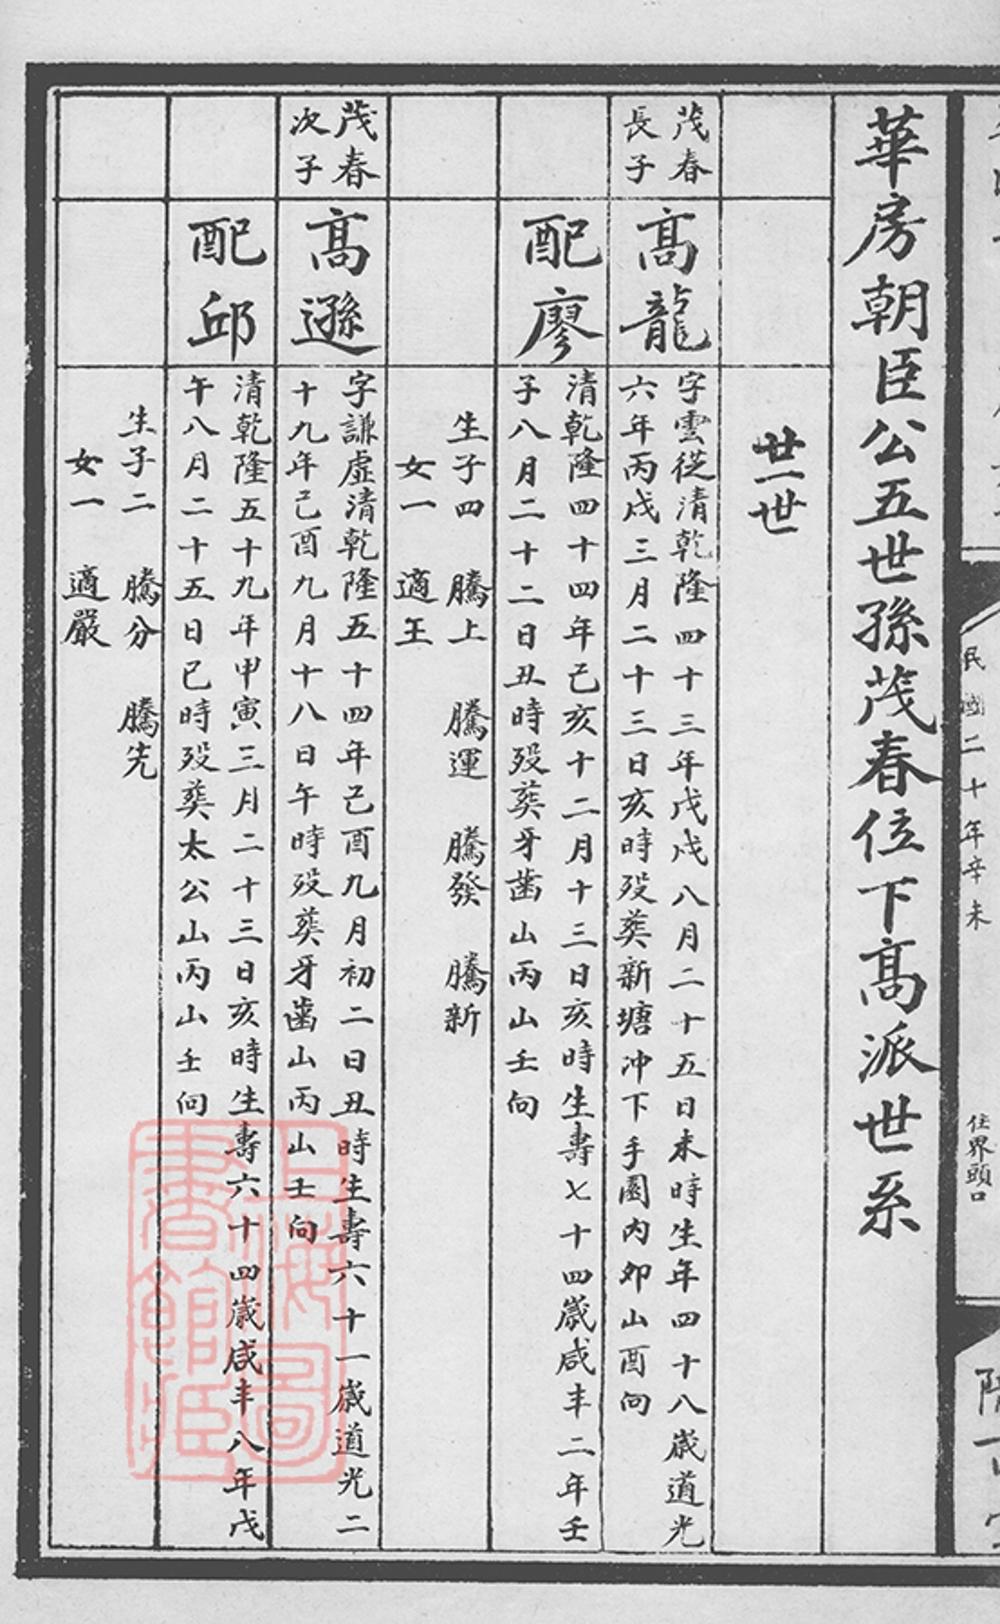 華房朝臣公五世孫茂春位下高派世系
廿一世
茂春
長子
高龍
字雲從清乾隆四十三年戊戌八月二十五日未時生年四十八歲道光
六年丙戌三月二十三日亥時殁葬新塘冲下手園内卯山酉向
配廖
清乾隆四十四年己亥十二月十三日亥時生壽七十四歲咸丰二年壬
子八月二十二日丑時殁葬牙齒山丙山壬向
生子四 騰上 騰運 騰發 騰新
女一 適王
茂春
次子
高遜
字謙虛清乾隆五十四年己酉九月初二日丑時生壽六十一歲道光二
十九年己酉九月十八日午時殁葬牙齒山丙山壬向
配邱
清乾隆五十九年甲寅三月二十三日亥時生壽六十四歲咸丰八年戊
午八月二十五日巳時殁葬太公山丙山壬向
生子二 騰分 騰先
女一 適嚴
民國二十年辛未
住界頭口
上海圖書館藏